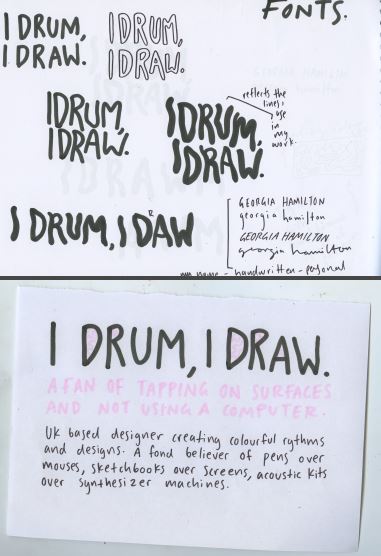 FONTS.
I DRUM,
I DRAW.
I DRUM,
I DRAW.
I DRUM,
I DRAW.
I DRUM,
I DRAW.
reflects the
lines i
use
in
my
work.
I DRUM, I DRAW
GEORGIA HAMILTON
georgia hamilton
GEORGIA HAMILTON
georgia hamilton
my name - handwritten - personal
I DRUM, I DRAW.
A FAN OF TAPPING ON SURFACES
AND NOT USING A COMPUTER.
UK based designer creating colourful rythms
and designs. A fond believer of pens over
mouses, sketchbooks over screens, acoustic kits
over synthesizer machines.